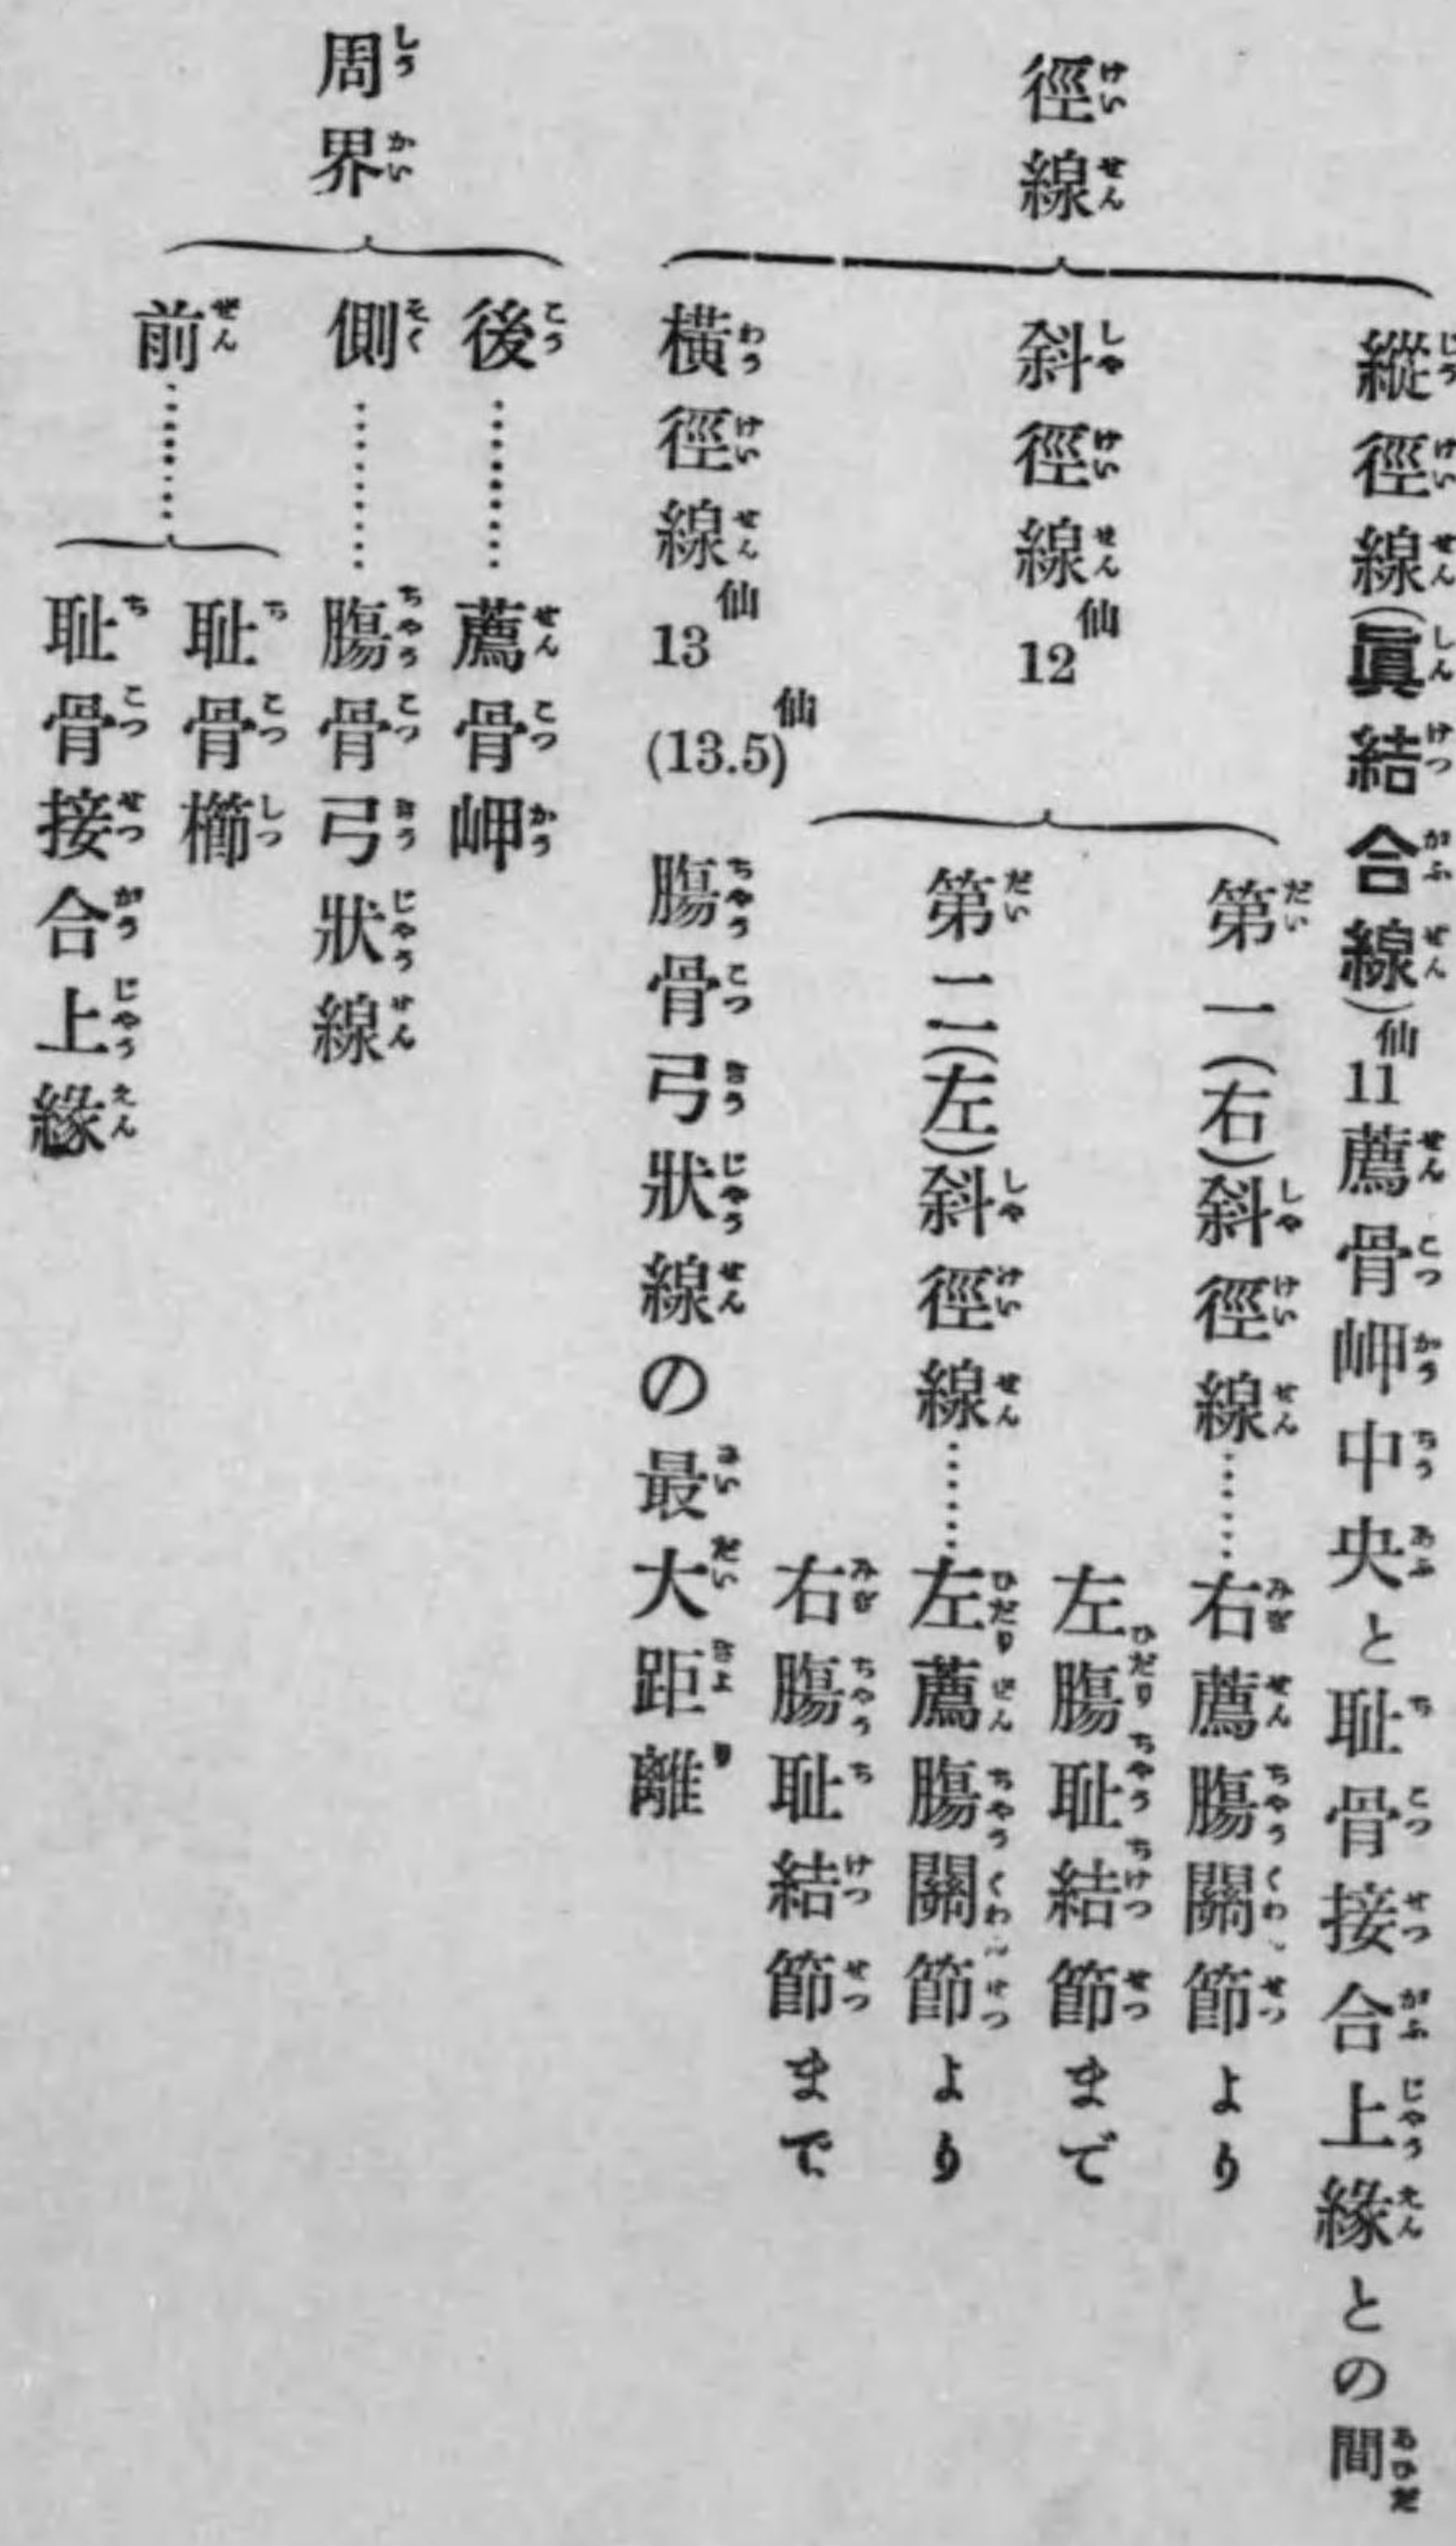 徑線
縱徑線(眞結合線)11仙 薦骨岬中央と耻骨接合上緣との間
斜徑線 12仙
第一(右)斜徑線……右薦腸關節より
左腸耻結節まで
第二(左)斜徑線……左薦腸關節より
右腸耻結節まで
橫徑線 13仙 (13.5)仙 腸骨弓狀線の最大距離
周界
後………薦骨岬
側………腸骨弓狀線
前………耻骨櫛
耻骨接合上緣